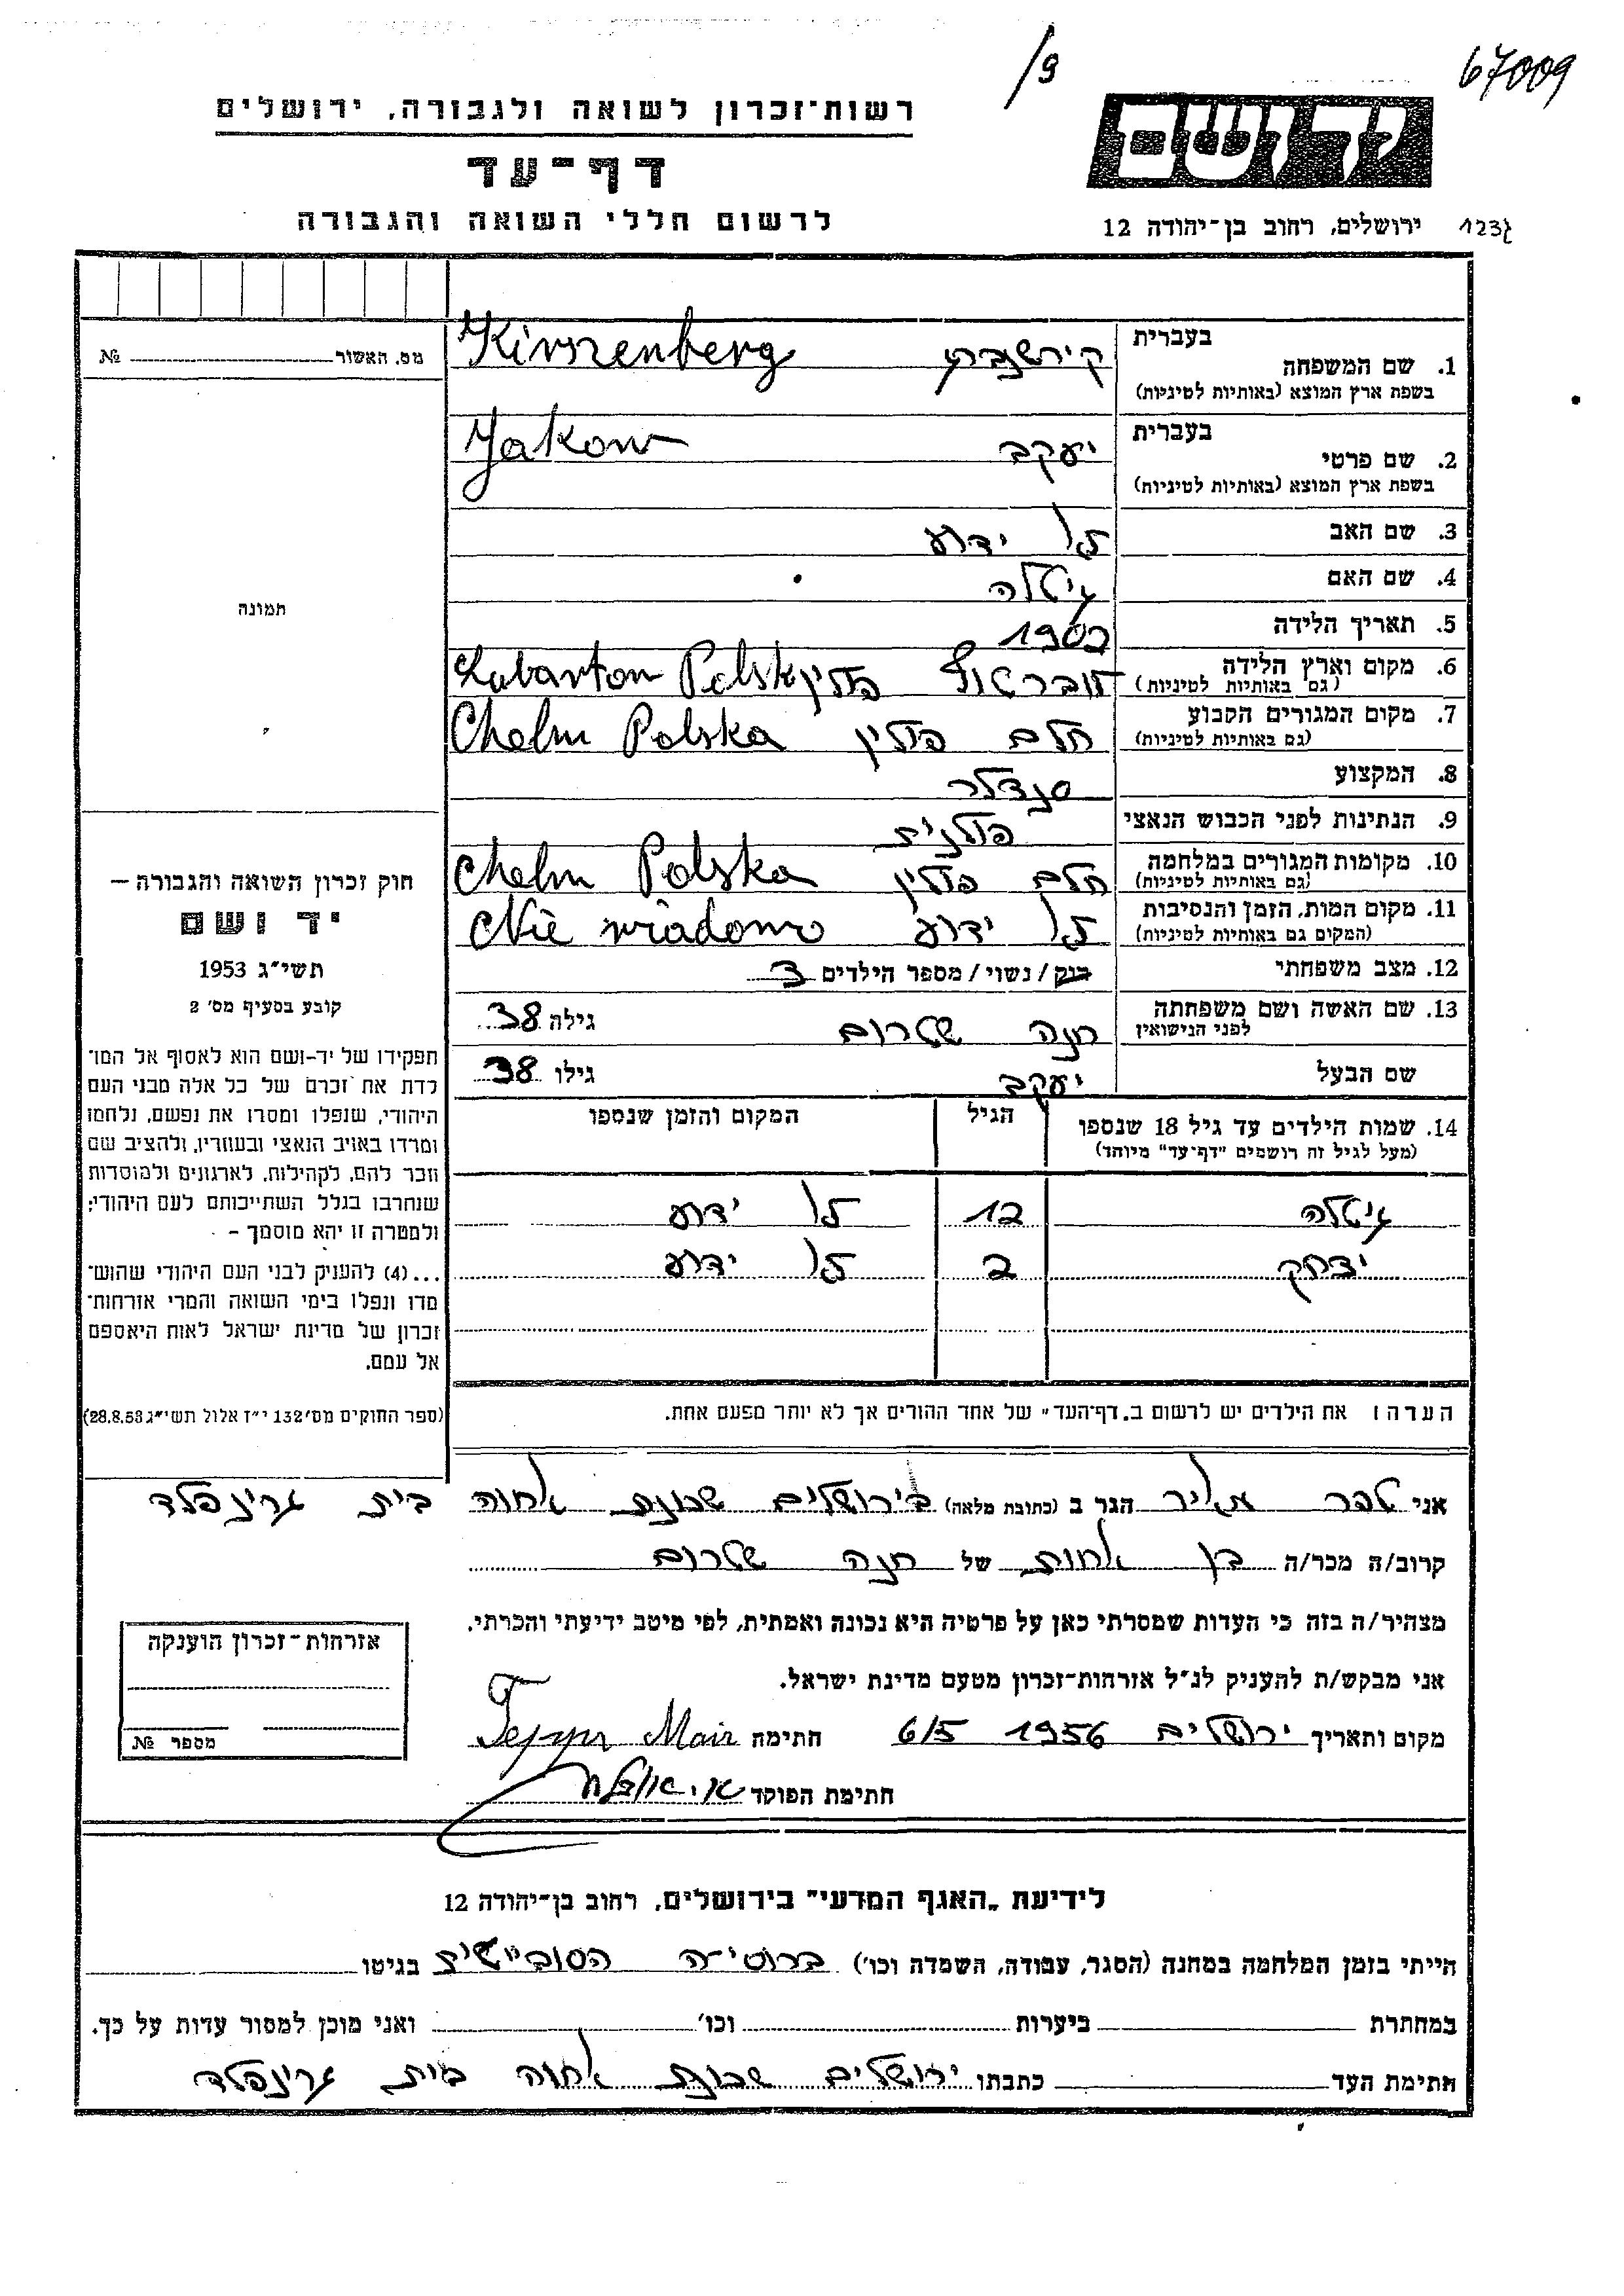 /9
67009
רשות־זכרון לשואה ולגבורה, ירושלים
דף־עד
לרשום חללי השואה והגבורה
יד ושם
ירושלים, רחוב בן־יהודה 12
123ג
מס. האשור № 
בעברית
1. שם המשפחה
בשפת ארץ המוצא (באותיות לטיניות)
קירשנברג Kirszenberg
בעברית
2. שם פרטי
בשפת ארץ המוצא (באותיות לטיניות)
יעקב Jakow
3. שם האב לא ידוע
4. שם האם גיטלה
5. תאריך הלידה 1903
6. מקום וארץ הלידה
(גם באותיות לטיניות)
פולין Lubarton Polska
7. מקום המגורים הקבוע
(גם באותיות לטיניות)
חלם פולין Chelm Polska
8. המקצוע סנדלר
9. הנתינות לפני הכבוש הנאצי פולנית
10. מקומות המגורים במלחמה
(גם באותיות לטיניות)
חלם פולין Chelm Polska
11. מקום המות, הזמן והנסיבות
(המקום גם באותיות לטיניות)
לא ידוע Nie wiadomo
12. מצב משפחתי רוק / נשוי / מספר הילדים 3
13. שם האשה ושם משפחתה
לפני הנישואין
חנה שטרום גילה 38
שם הבעל יעקב גילו 38
14. שמות הילדים עד גיל 18 שנספו
(מעל לגיל זה רושמים "דף־עד" מיוחד)
הגיל
המקום והזמן שנספו
גיטלה 12 לא ידוע
יצחק 2 לא ידוע
הערה: את הילדים יש לרשום ב„דף־העד" של אחד ההורים אך לא יותר מפעם אחת.
תמונה
חוק זכרון השואה והגבורה —
יד ושם
תשי״ג 1953
קובע בסעיף מס׳ 2
תפקידו של יד־ושם הוא לאסוף אל המו־
לדת את זכרם של כל אלה מבני העם
היהודי, שנפלו ומסרו את נפשם, נלחמו
ומרדו באויב הנאצי ובעוזריו, ולהציב שם
וזכר להם, לקהילות, לארגונים ולמוסדות
שנחרבו בגלל השתייכותם לעם היהודי;
ולמטרה זו יהא מוסמך –
...(4) להעניק לבני העם היהודי שהוש־
מדו ונפלו בימי השואה והמרי אזרחות־
זכרון של מדינת ישראל לאות היאספם
אל עמם.
(ספר החוקים מס׳ 132 י״ז אלול תשי״ג 28.8.53)
אני טפר מאיר הגר ב (כתובת מלאה) בירושלים שכונת אחוה בית גרינפלד
קרוב/ה מכר/ה בן אחות של חנה שטרום
מצהיר/ה בזה כי העדות שמסרתי כאן על פרטיה היא נכונה ואמתית, לפי מיטב ידיעתי והכרתי.
אני מבקש/ת להעניק לנ״ל אזרחות־זכרון מטעם מדינת ישראל.
מקום ותאריך ירושלים 1956 6/5 חתימה Mair
חתימת הפוקד
אזרחות־זכרון הוענקה
מספר №
לידיעת „האגף המדעי" בירושלים, רחוב בן־יהודה 12
הייתי בזמן המלחמה במחנה (הסגר, עבודה, השמדה וכו׳) ברוסיה בגיטו
במחתרת ביערות וכו׳ ואני מוכן למסור עדות על כך.
חתימת העד כתבתו ירושלים שכונת אחוה בית גרינפלד